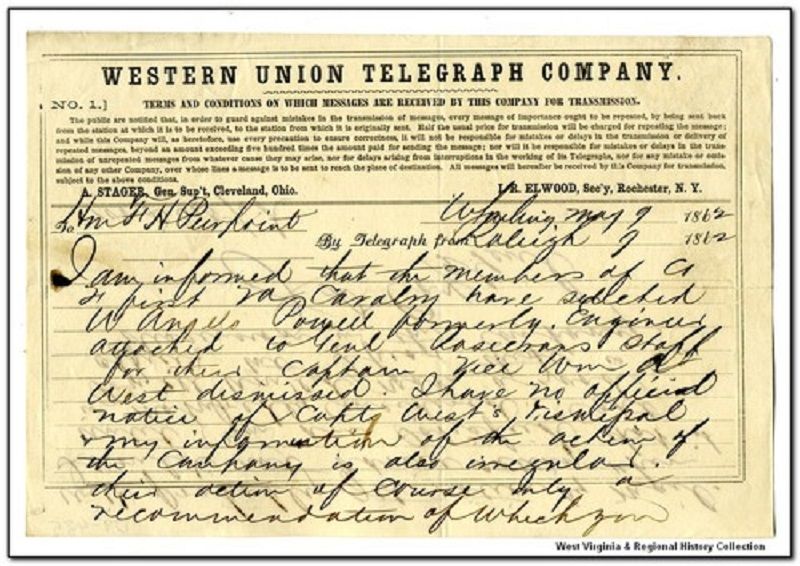 WESTERN UNION TELEGRAPH COMPANY.
NO. 1.]
TERMS AND CONDITIONS ON WHICH MESSAGES ARE RECEIVED BY THIS COMPANY FOR TRANSMISSION.
The public are notified, that, in order to guard against mistakes in the transmission of messages, every message of importance ought to be repeated, by being sent back
from the station at which it is to be received, to the station from which it is originally sent. Half the usual price for transmission will be charged for repeating the message;
and while this Company will, as heretofore, use every precaution to ensure correctness, it will not be responsible for mistakes or delays in the transmission or delivery of
repeated messages, beyond an amount exceeding five hundred times the amount paid for sending the message; nor will it be responsible for mistakes or delays in the trans-
mission of unrepeated messages from whatever cause they may arise, nor for delays arising from interruptions in the working of its Telegraphs, nor for any mistake or omis-
sion of any other Company, over whose lines a message is to be sent to reach the place of destination. All messages will hereafter be received by this Company for transmission,
subject to the above conditions.
A. STAGER, Gen. Sup't, Cleveland, Ohio.
I. R. ELWOOD, Sec'y, Rochester, N. Y.
To Hon F H Peirpoint
Wheeling May 9 1862
By Telegraph from Raleigh 9 1862
I am informed that the members of Co
first Va Cavalry have selected
W Angelo Powell formerly Engineer
attached to Genl Rosecrans staff
for their Captain vice Wm A
West dismissed. I have no official
notice of Capts West's dismissal
& my information of the action of
the Company is also irregular.
their action of course only a
recommendation of which you
West Virginia & Regional History Collection